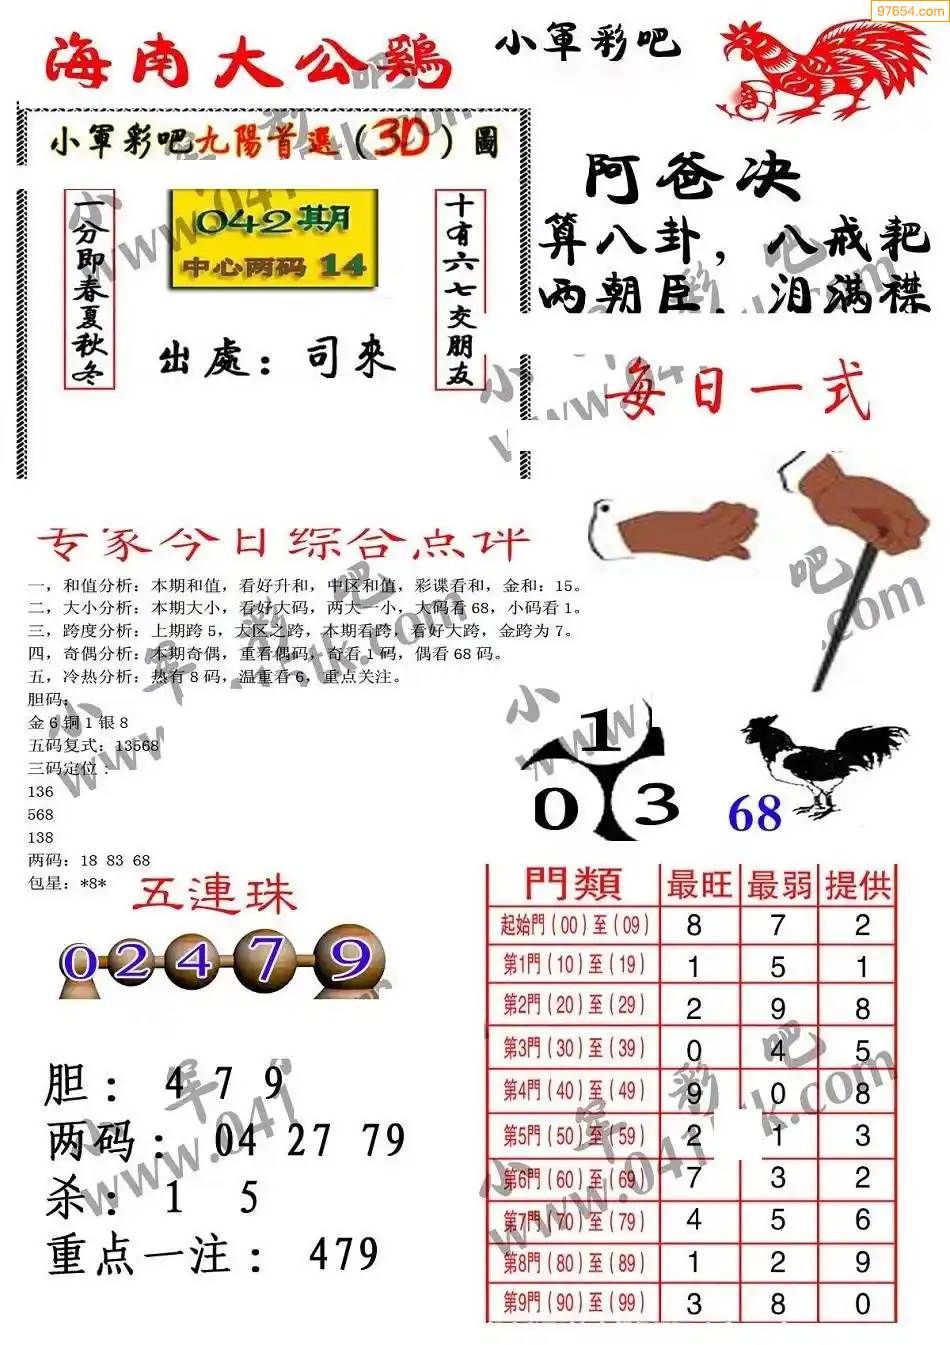 97654.com
海南大公鷄
小軍彩吧
小軍彩吧九陽首選（3D）圖
一分即春夏秋冬
042期
中心两码 14
十有六七交朋友
出處：司來
阿爸决
算八卦，八戒耙
两朝臣，泪满襟
每日一式
专家今日综合点评
一，和值分析：本期和值，看好升和，中区和值，彩谍看和，金和：15。
二，大小分析：本期大小，看好大码，两大一小，大码看68，小码看1。
三，跨度分析：上期跨5，大区之跨，本期看跨，看好大跨，金跨为7。
四，奇偶分析：本期奇偶，重看偶码，奇看1码，偶看68码。
五，冷热分析：热有8码，温重看6，重点关注。
胆码：
金6铜1银8
五码复式：13568
三码定位：
136
568
138
两码：18 83 68
包星：*8*
1
0 3
68
五連珠
0 2 4 7 9
胆： 4 7 9
两码： 04 27 79
杀： 1 5
重点一注： 479
門類 最旺 最弱 提供
起始門（00）至（09） 8 7 2
第1門（10）至（19） 1 5 1
第2門（20）至（29） 2 9 8
第3門（30）至（39） 0 4 5
第4門（40）至（49） 9 0 8
第5門（50）至（59） 2 1 3
第6門（60）至（69） 7 3 2
第7門（70）至（79） 4 5 6
第8門（80）至（89） 1 2 9
第9門（90）至（99） 3 8 0
小军彩吧
www.041tk.com